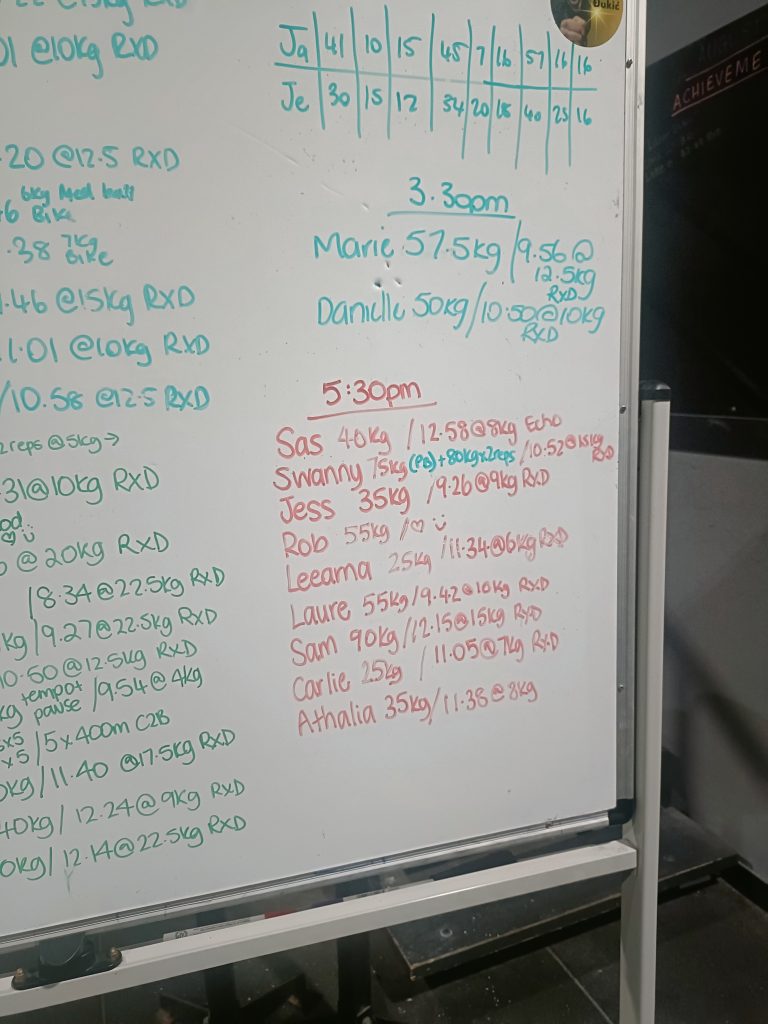 01 @10kg RXD
.20 @12.5 RXD
6kg Med ball
Bike
.38 7kg Bike
.46 @15kg RXD
1.01 @10kg RXD
/10.58 @12.5 RXD
2reps @5kg →
.31@10kg RXD
@ 20kg RXD
/8:34@22.5kg RXD
kg/9.27@22.5kg RXD
10.50@12.5kg RXD
kg tempo + pause /9.54@4kg
x5 /5x400m C2B
x5
0kg/11.40 @17.5kg RXD
40kg/ 12.24@9kg RXD
0kg/ 12.14@22.5kg RXD
Ja 41 10 15 45 7 16 57 16 16
Je 30 15 12 34 20 18 40 25 16
3.30pm
Marie 57.5kg /9.56 @ 12.5kg RXD
Danielle 50kg/10.50@10kg RXD
5:30pm
Sas 40kg /12.58@8kg Echo
Swanny 75kg (PB)+80kgx2reps /10.52@15kg RXD
Jess 35kg /9.26@9kg RXD
Rob 55kg /♡ :)
Leeama 25kg /11.34@6kg RXD
Laure 55kg/9.42@10kg RXD
Sam 90kg/12.15@15kg RXD
Carlie 25kg / 11.05@7kg RXD
Athalia 35kg/11.38@8kg
Đukić
ACHIEVEME